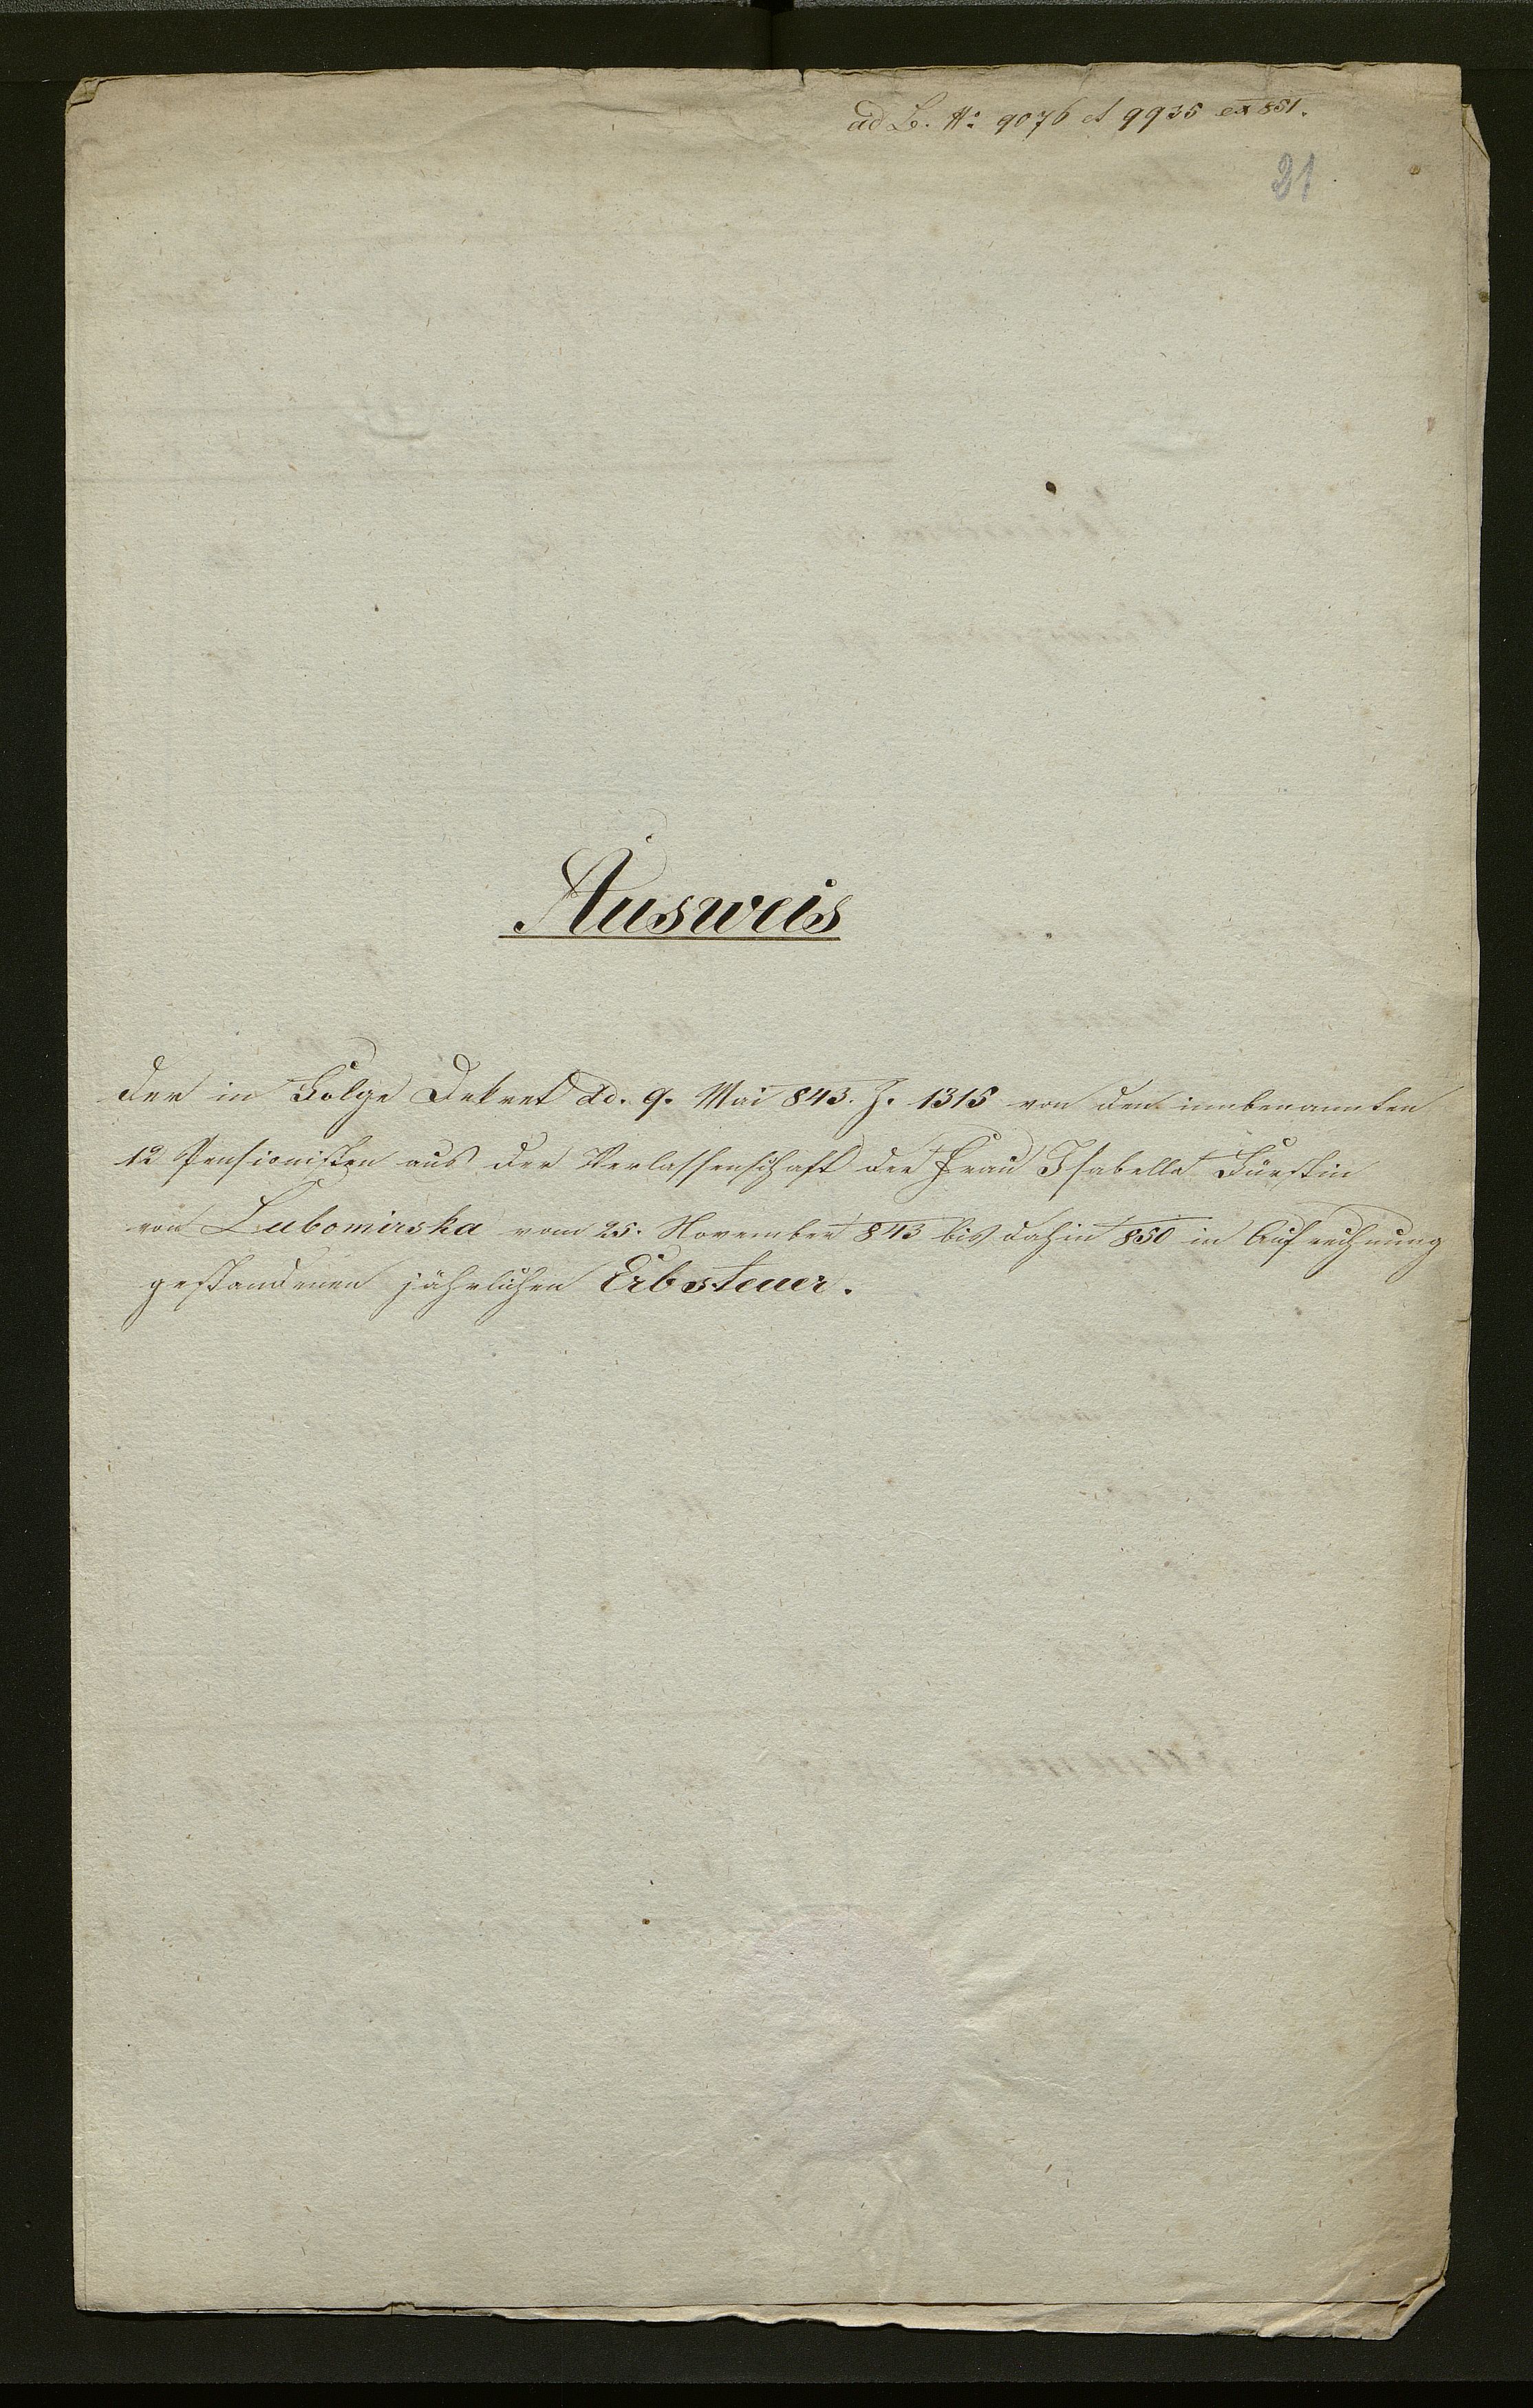 ad L. No 9076 et 9935 ex 851.
21
Ausweis
der in Folge Dekret dd. 9. Mai 843. Z. 1315 von den innbenannten
12 Pensionisten aus der Verlassenschaft der Frau Isabella Fürstin
von Lubomirska vom 25. November 843 bis dahin 850 in Aufrechnung
gestandenen jährlichen Erbsteuer.